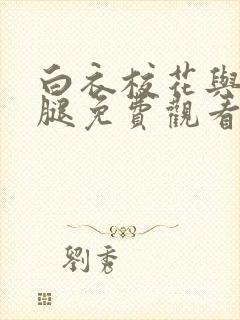 白衣校花與
腿免費觀看
劉秀